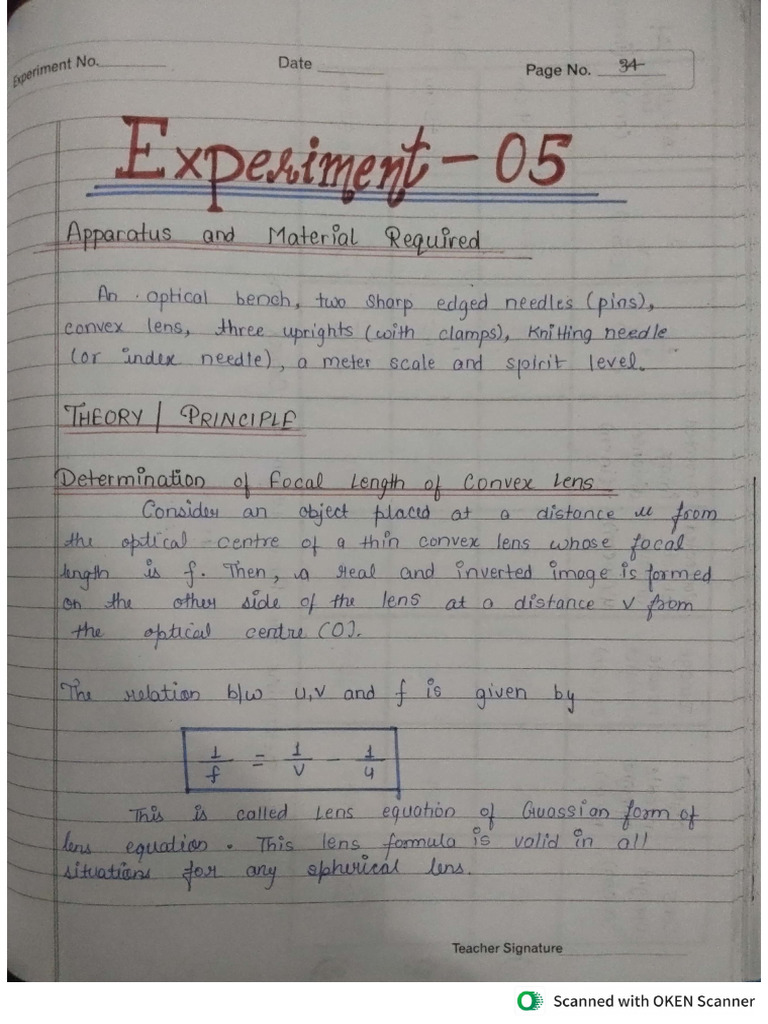 Experiment No. Date Page No. 34
Experiment - 05
Apparatus and Material Required
An optical bench, two sharp edged needles (pins),
convex lens, three uprights (with clamps), Knitting needle
(or index needle), a meter scale and spirit level.
THEORY / PRINCIPLE
Determination of Focal Length of Convex Lens
Consider an object placed at a distance u from
the optical centre of a thin convex lens whose focal
length is f. Then, a real and inverted image is formed
on the other side of the lens at a distance v from
the optical centre (O).
The relation b/w u,v and f is given by
1/f = 1/v - 1/u
This is called Lens equation of Guassian form of
lens equation. This lens formula is valid in all
situations for any spherical lens.
Teacher Signature
Scanned with OKEN Scanner